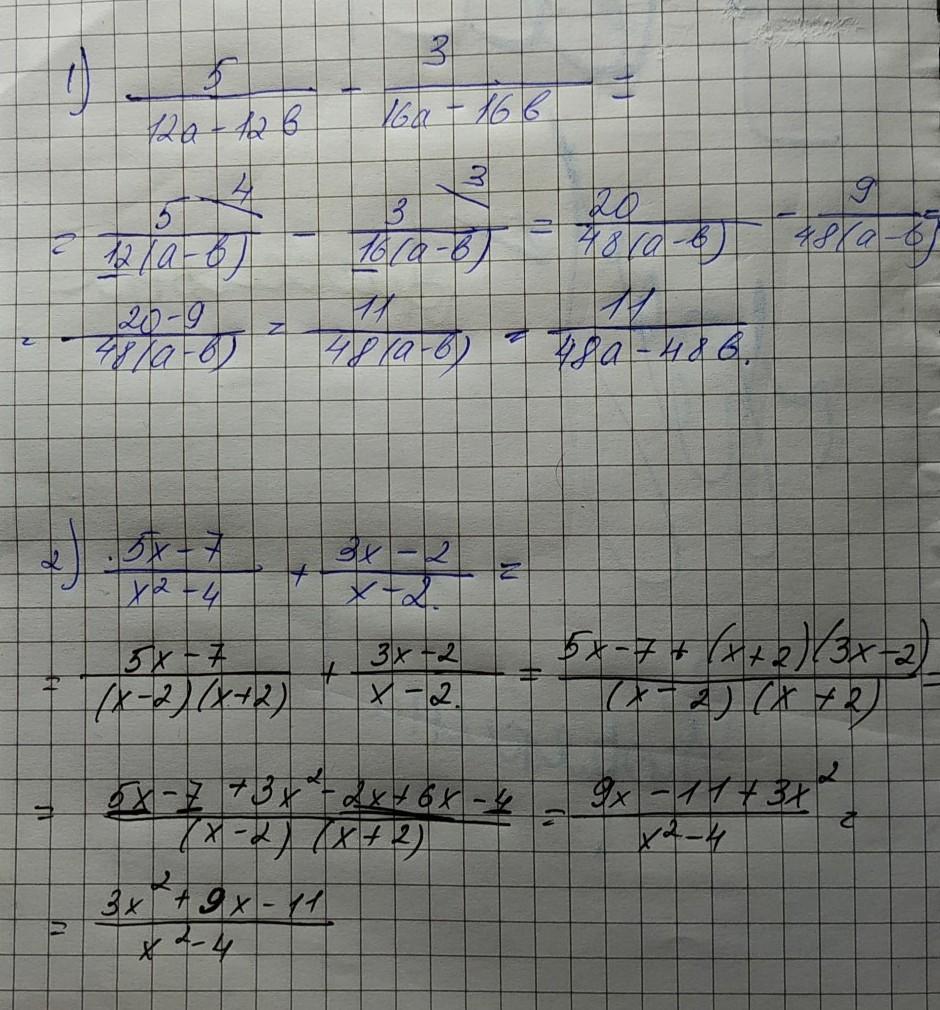 1) 5/(12a-12в) - 3/(16a-16в) =
= 5\4/(12(a-в)) - 3\3/(16(a-в)) = 20/(48(a-в)) - 9/(48(a-в)) =
= (20-9)/(48(a-в)) = 11/(48(a-в)) = 11/(48a-48в).
2) (5x-7)/(x²-4) + (3x-2)/(x-2) =
= (5x-7)/((x-2)(x+2)) + (3x-2)/(x-2) = (5x-7+(x+2)(3x-2))/((x-2)(x+2)) =
= (5x-7+3x²-2x+6x-4)/((x-2)(x+2)) = (9x-11+3x²)/(x²-4) =
= (3x²+9x-11)/(x²-4)